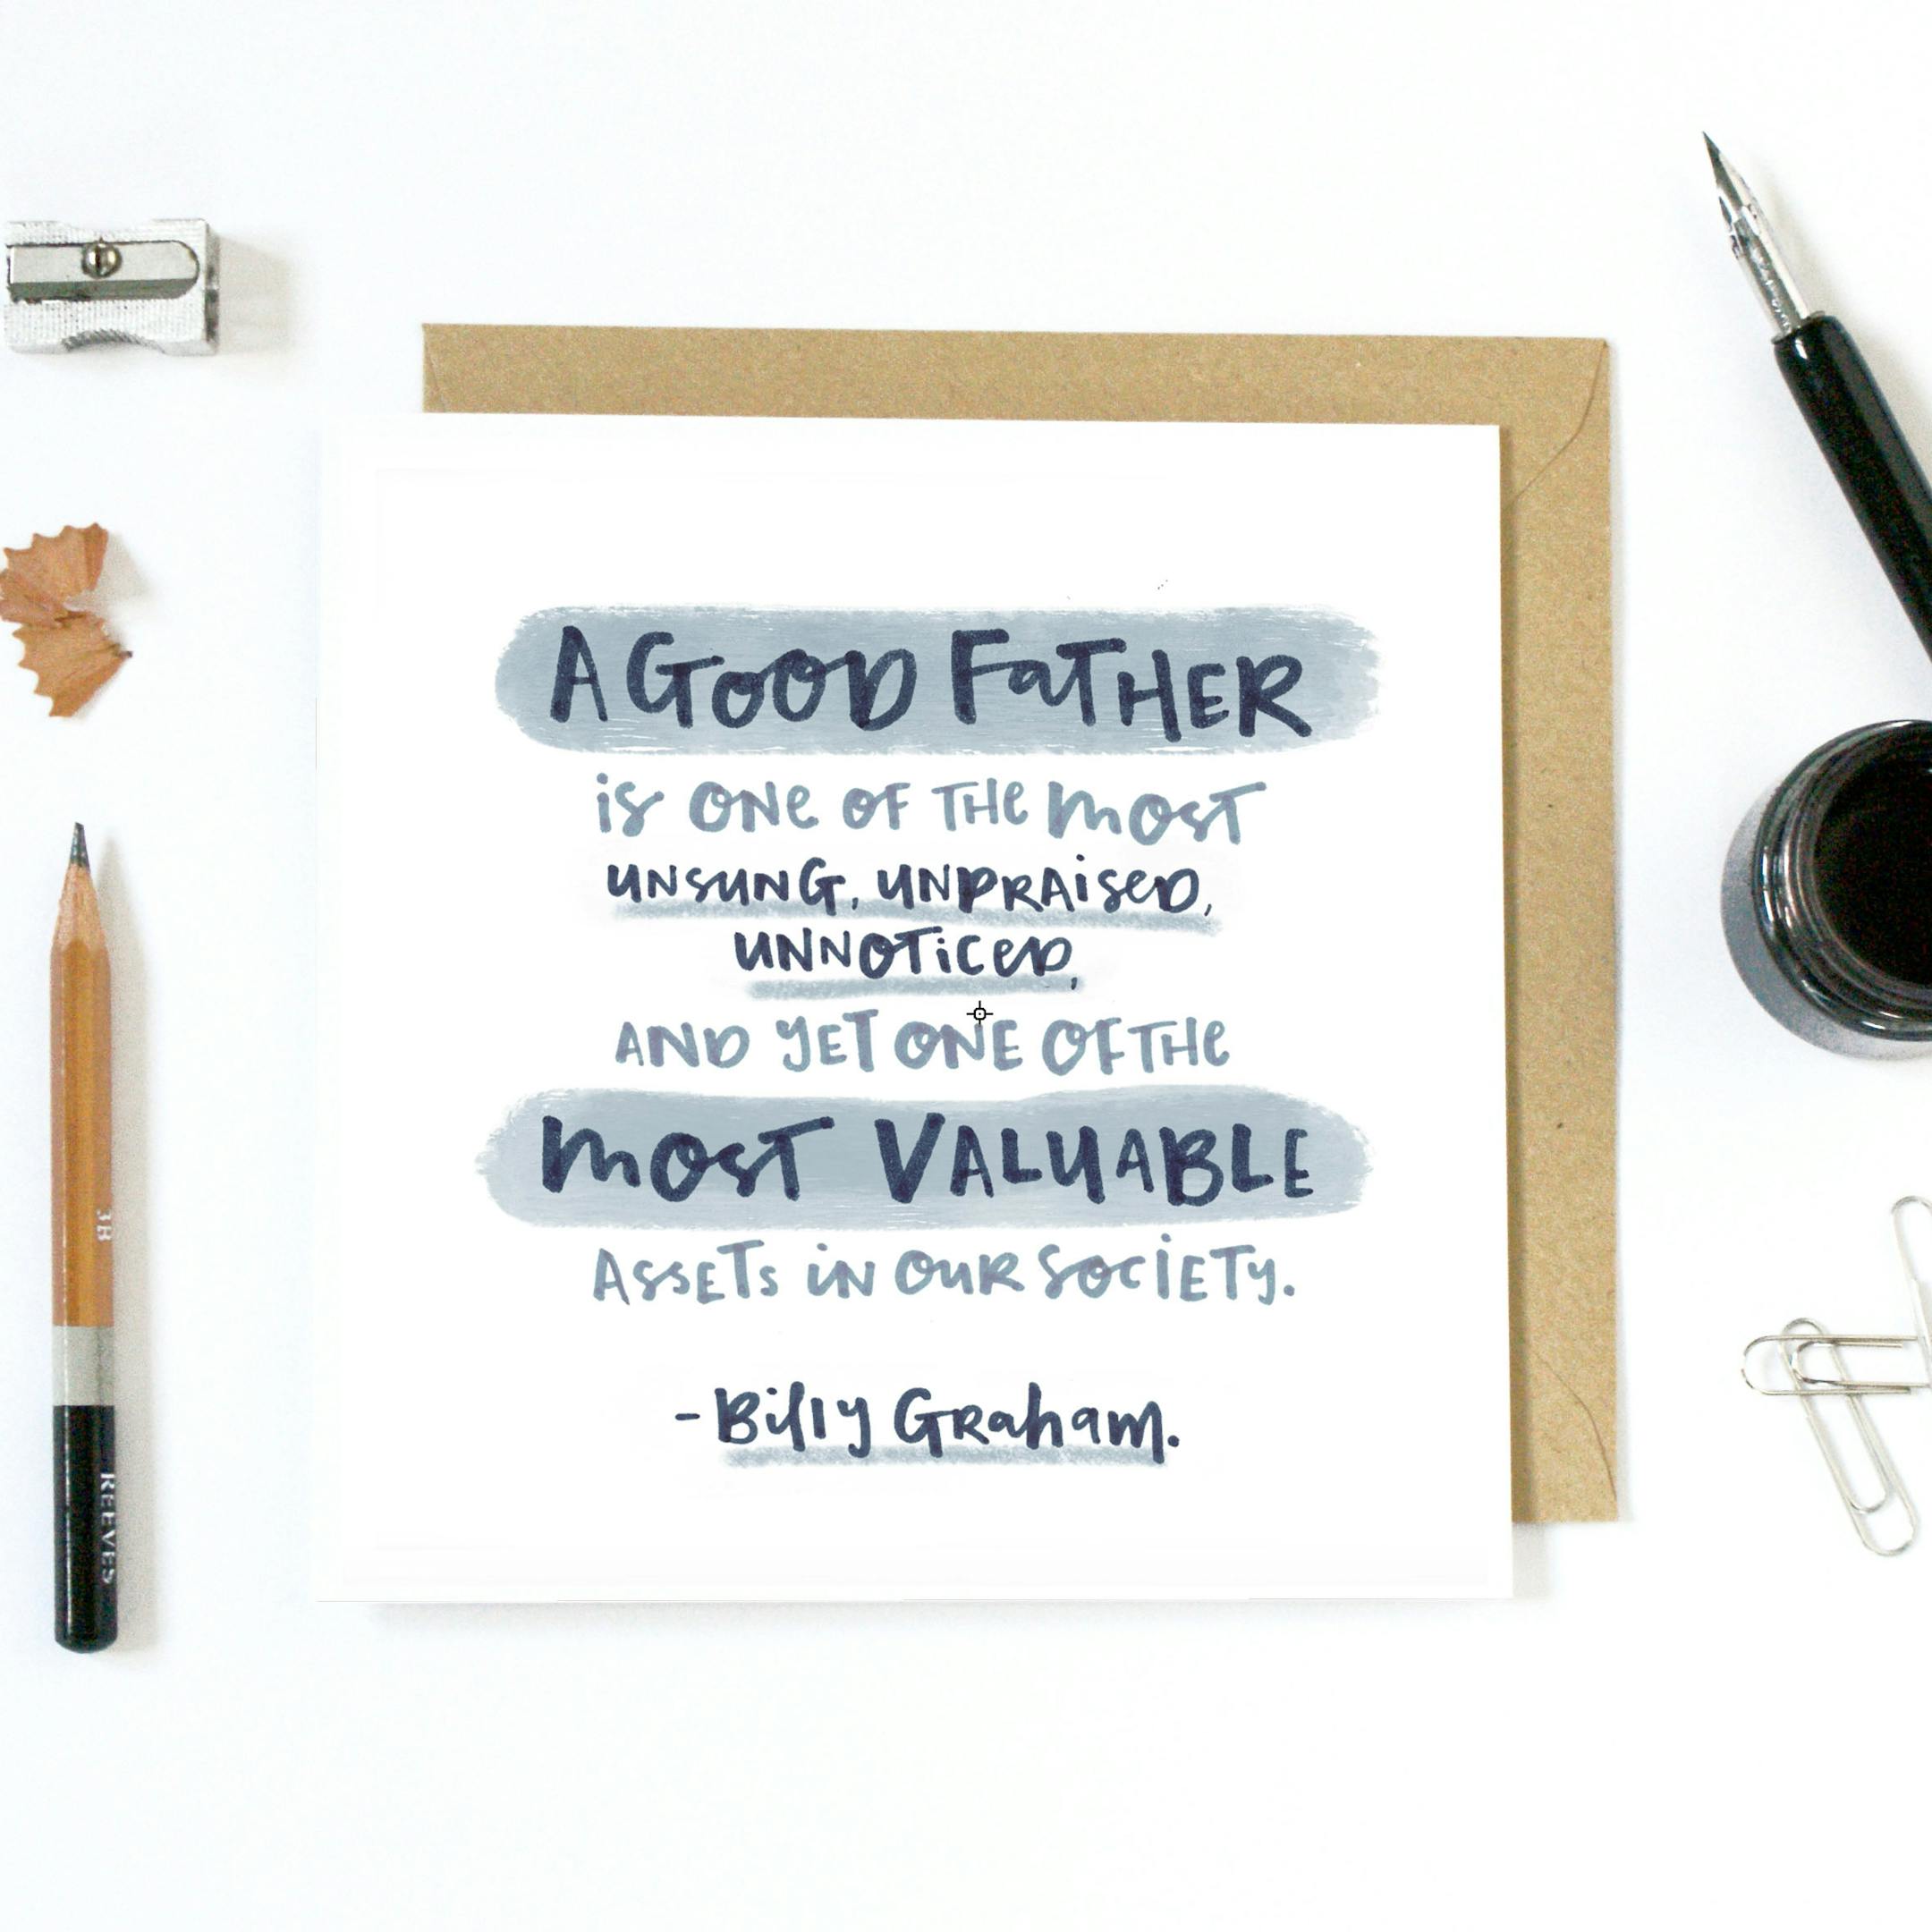 A GOOD FATHER
is ONE OF THE MOST
UNSUNG, UNPRAISED,
UNNOTICED,
AND YET ONE OF THE
MOST VALUABLE
ASSETS IN OUR SOCIETY.
- Billy Graham.
3B
REEVES